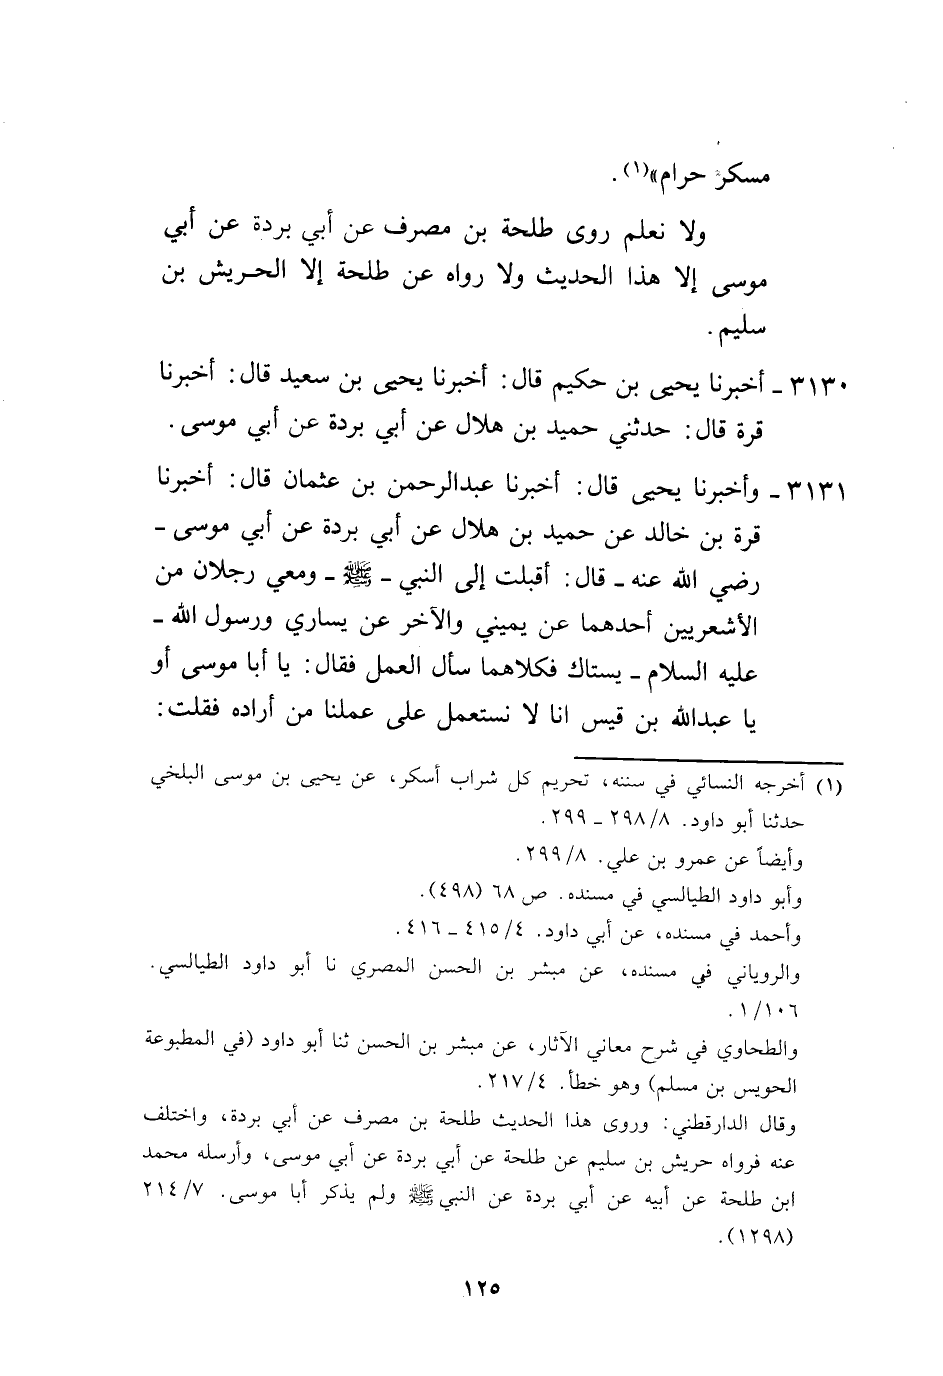 مسكر حرام»(١).
ولا نعلم روى طلحة بن مصرف عن أبي بردة عن أبي
موسى إلا هذا الحديث ولا رواه عن طلحة إلا الحريش بن
سليم.
٣١٣٠ ـ أخبرنا يحيى بن حكيم قال: أخبرنا يحيى بن سعيد قال: أخبرنا
قرة قال: حدثني حميد بن هلال عن أبي بردة عن أبي موسى.
٣١٣١ ـ وأخبرنا يحيى قال: أخبرنا عبدالرحمن بن عثمان قال: أخبرنا
قرة بن خالد عن حميد بن هلال عن أبي بردة عن أبي موسى ـ
رضي الله عنه ـ قال: أقبلت إلى النبي ـ ﷺ ـ ومعي رجلان من
الأشعريين أحدهما عن يميني والآخر عن يساري ورسول الله ـ
عليه السلام ـ يستاك فكلاهما سأل العمل فقال: يا أبا موسى أو
يا عبدالله بن قيس انا لا نستعمل على عملنا من أراده فقلت:
(١) أخرجه النسائي في سننه، تحريم كل شراب أسكر، عن يحيى بن موسى البلخي
حدثنا أبو داود. ٨/ ٢٩٨ ـ ٢٩٩.
وأيضاً عن عمرو بن علي. ٨/ ٢٩٩.
وأبو داود الطيالسي في مسنده. ص ٦٨ (٤٩٨).
وأحمد في مسنده، عن أبي داود. ٤/ ٤١٥ ـ ٤١٦.
والروياني في مسنده، عن مبشر بن الحسن المصري نا أبو داود الطيالسي.
١/١٠٦.
والطحاوي في شرح معاني الآثار، عن مبشر بن الحسن ثنا أبو داود (في المطبوعة
الحويس بن مسلم) وهو خطأ. ٤/ ٢١٧.
وقال الدارقطني: وروى هذا الحديث طلحة بن مصرف عن أبي بردة، واختلف
عنه فرواه حريش بن سليم عن طلحة عن أبي بردة عن أبي موسى، وأرسله محمد
ابن طلحة عن أبيه عن أبي بردة عن النبي ﷺ ولم يذكر أبا موسى. ٧/ ٢١٤
(١٢٩٨).
١٢٥